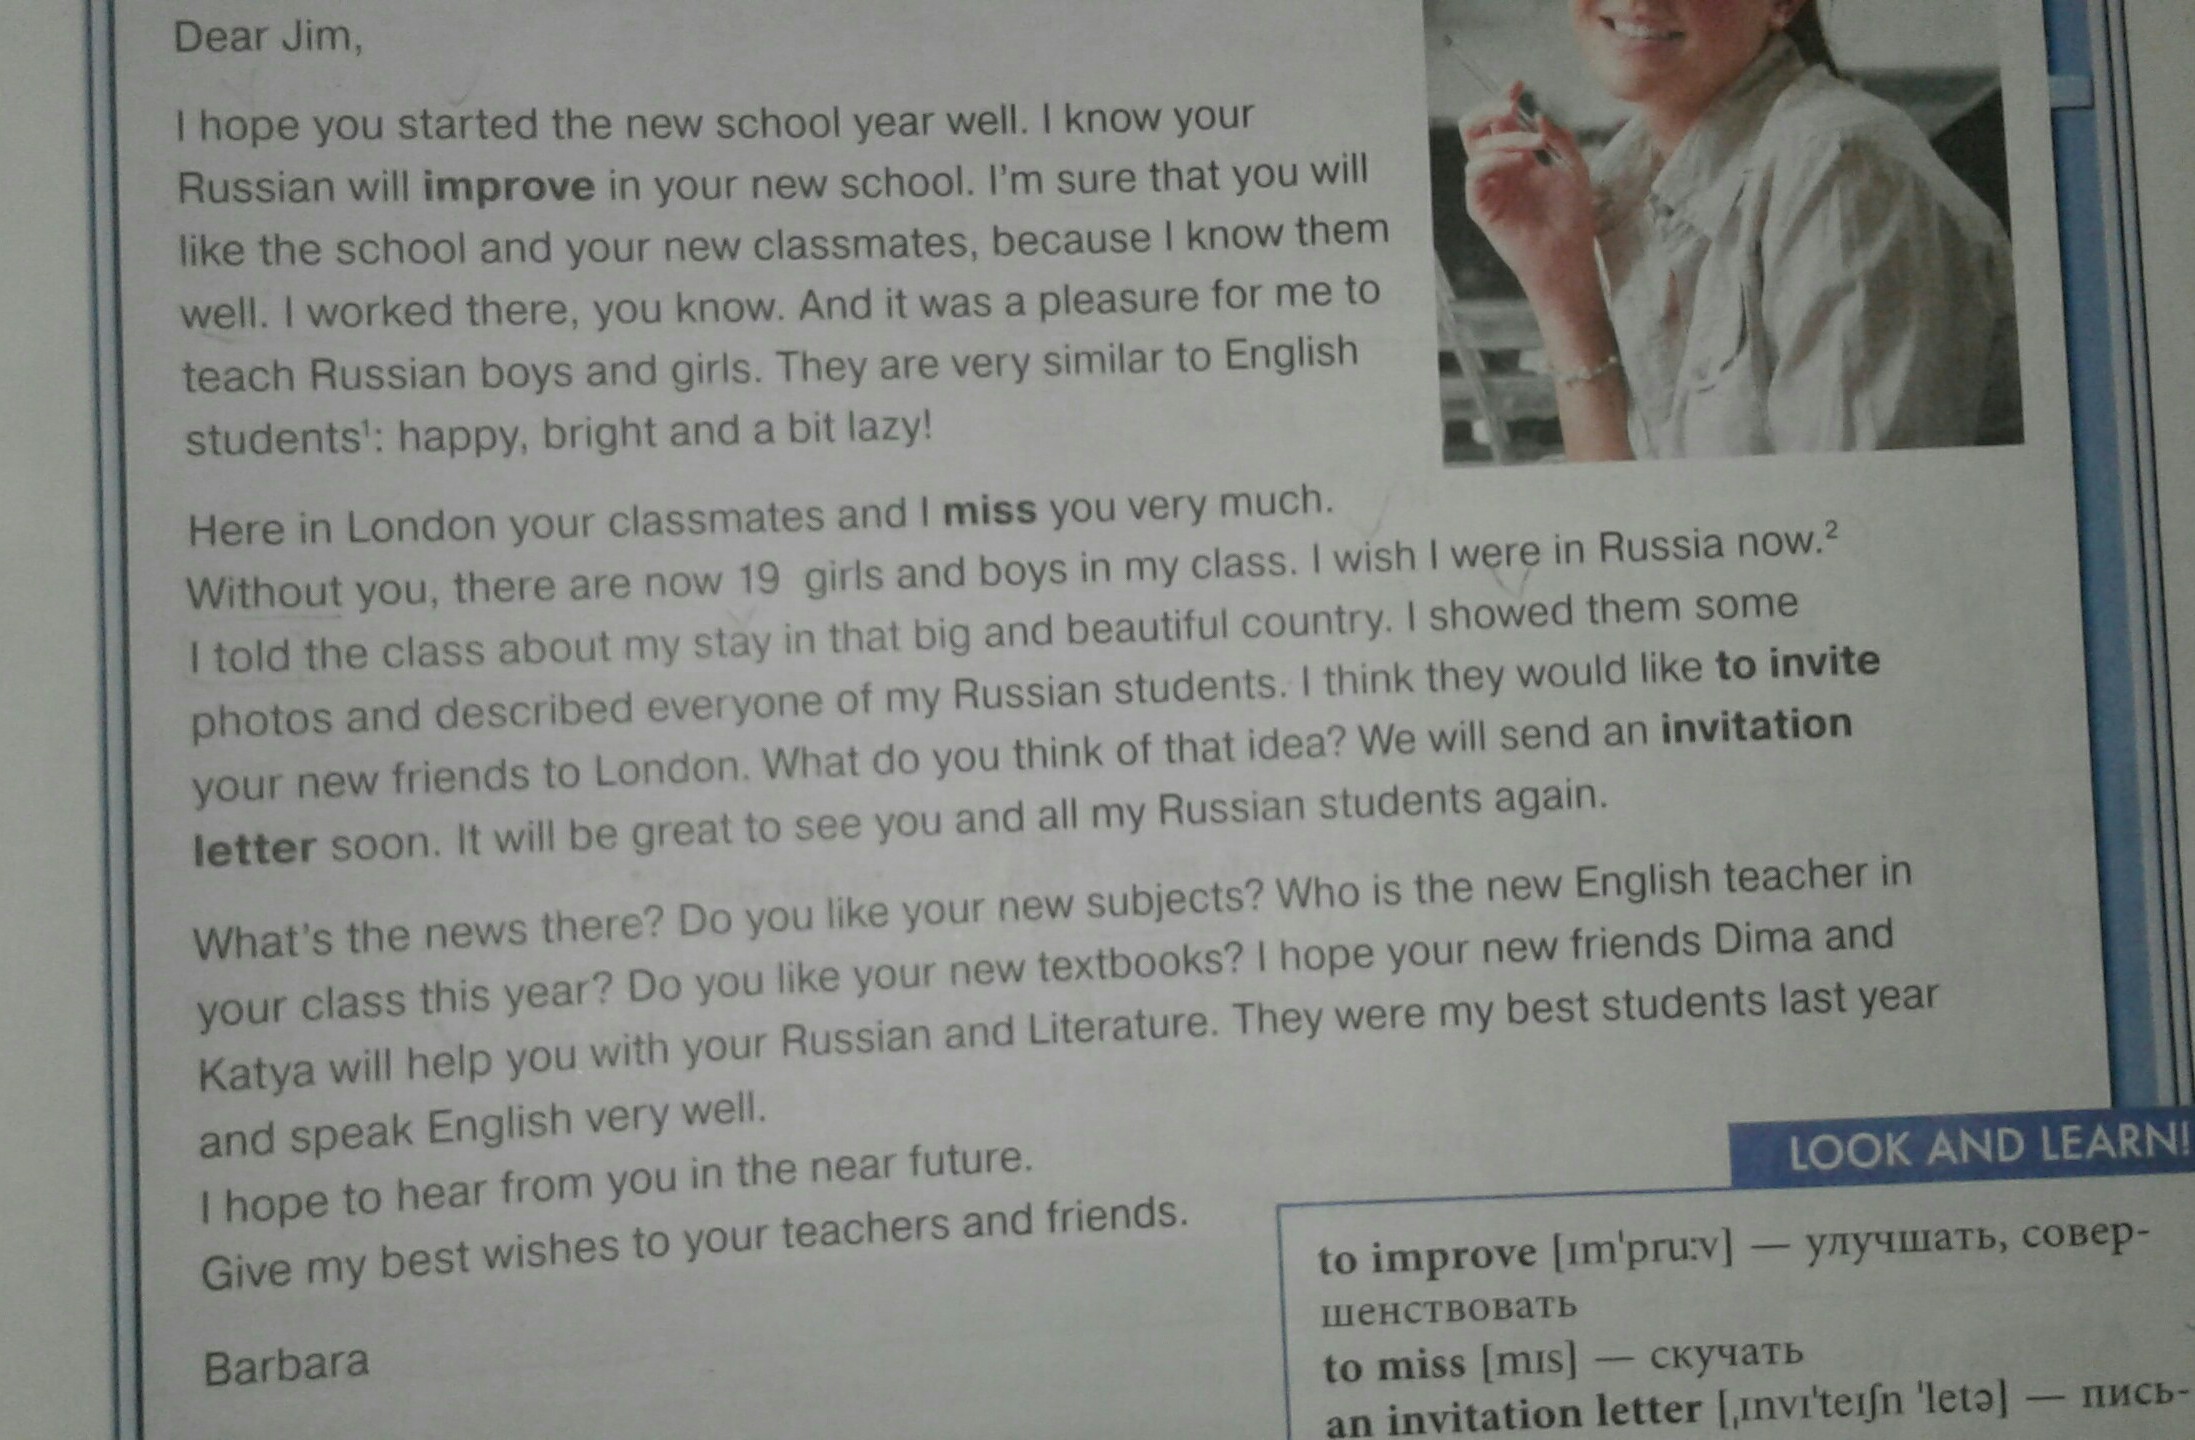 Dear Jim,
I hope you started the new school year well. I know your
Russian will improve in your new school. I'm sure that you will
like the school and your new classmates, because I know them
well. I worked there, you know. And it was a pleasure for me to
teach Russian boys and girls. They are very similar to English
students¹: happy, bright and a bit lazy!
Here in London your classmates and I miss you very much.
Without you, there are now 19 girls and boys in my class. I wish I were in Russia now.²
I told the class about my stay in that big and beautiful country. I showed them some
photos and described everyone of my Russian students. I think they would like to invite
your new friends to London. What do you think of that idea? We will send an invitation
letter soon. It will be great to see you and all my Russian students again.
What's the news there? Do you like your new subjects? Who is the new English teacher in
your class this year? Do you like your new textbooks? I hope your new friends Dima and
Katya will help you with your Russian and Literature. They were my best students last year
and speak English very well.
I hope to hear from you in the near future.
Give my best wishes to your teachers and friends.
Barbara
LOOK AND LEARN!
to improve [ɪm'pru:v] — улучшать, совер-
шенствовать
to miss [mɪs] — скучать
an invitation letter [ˌɪnvɪ'teɪʃn 'letə] — пись-